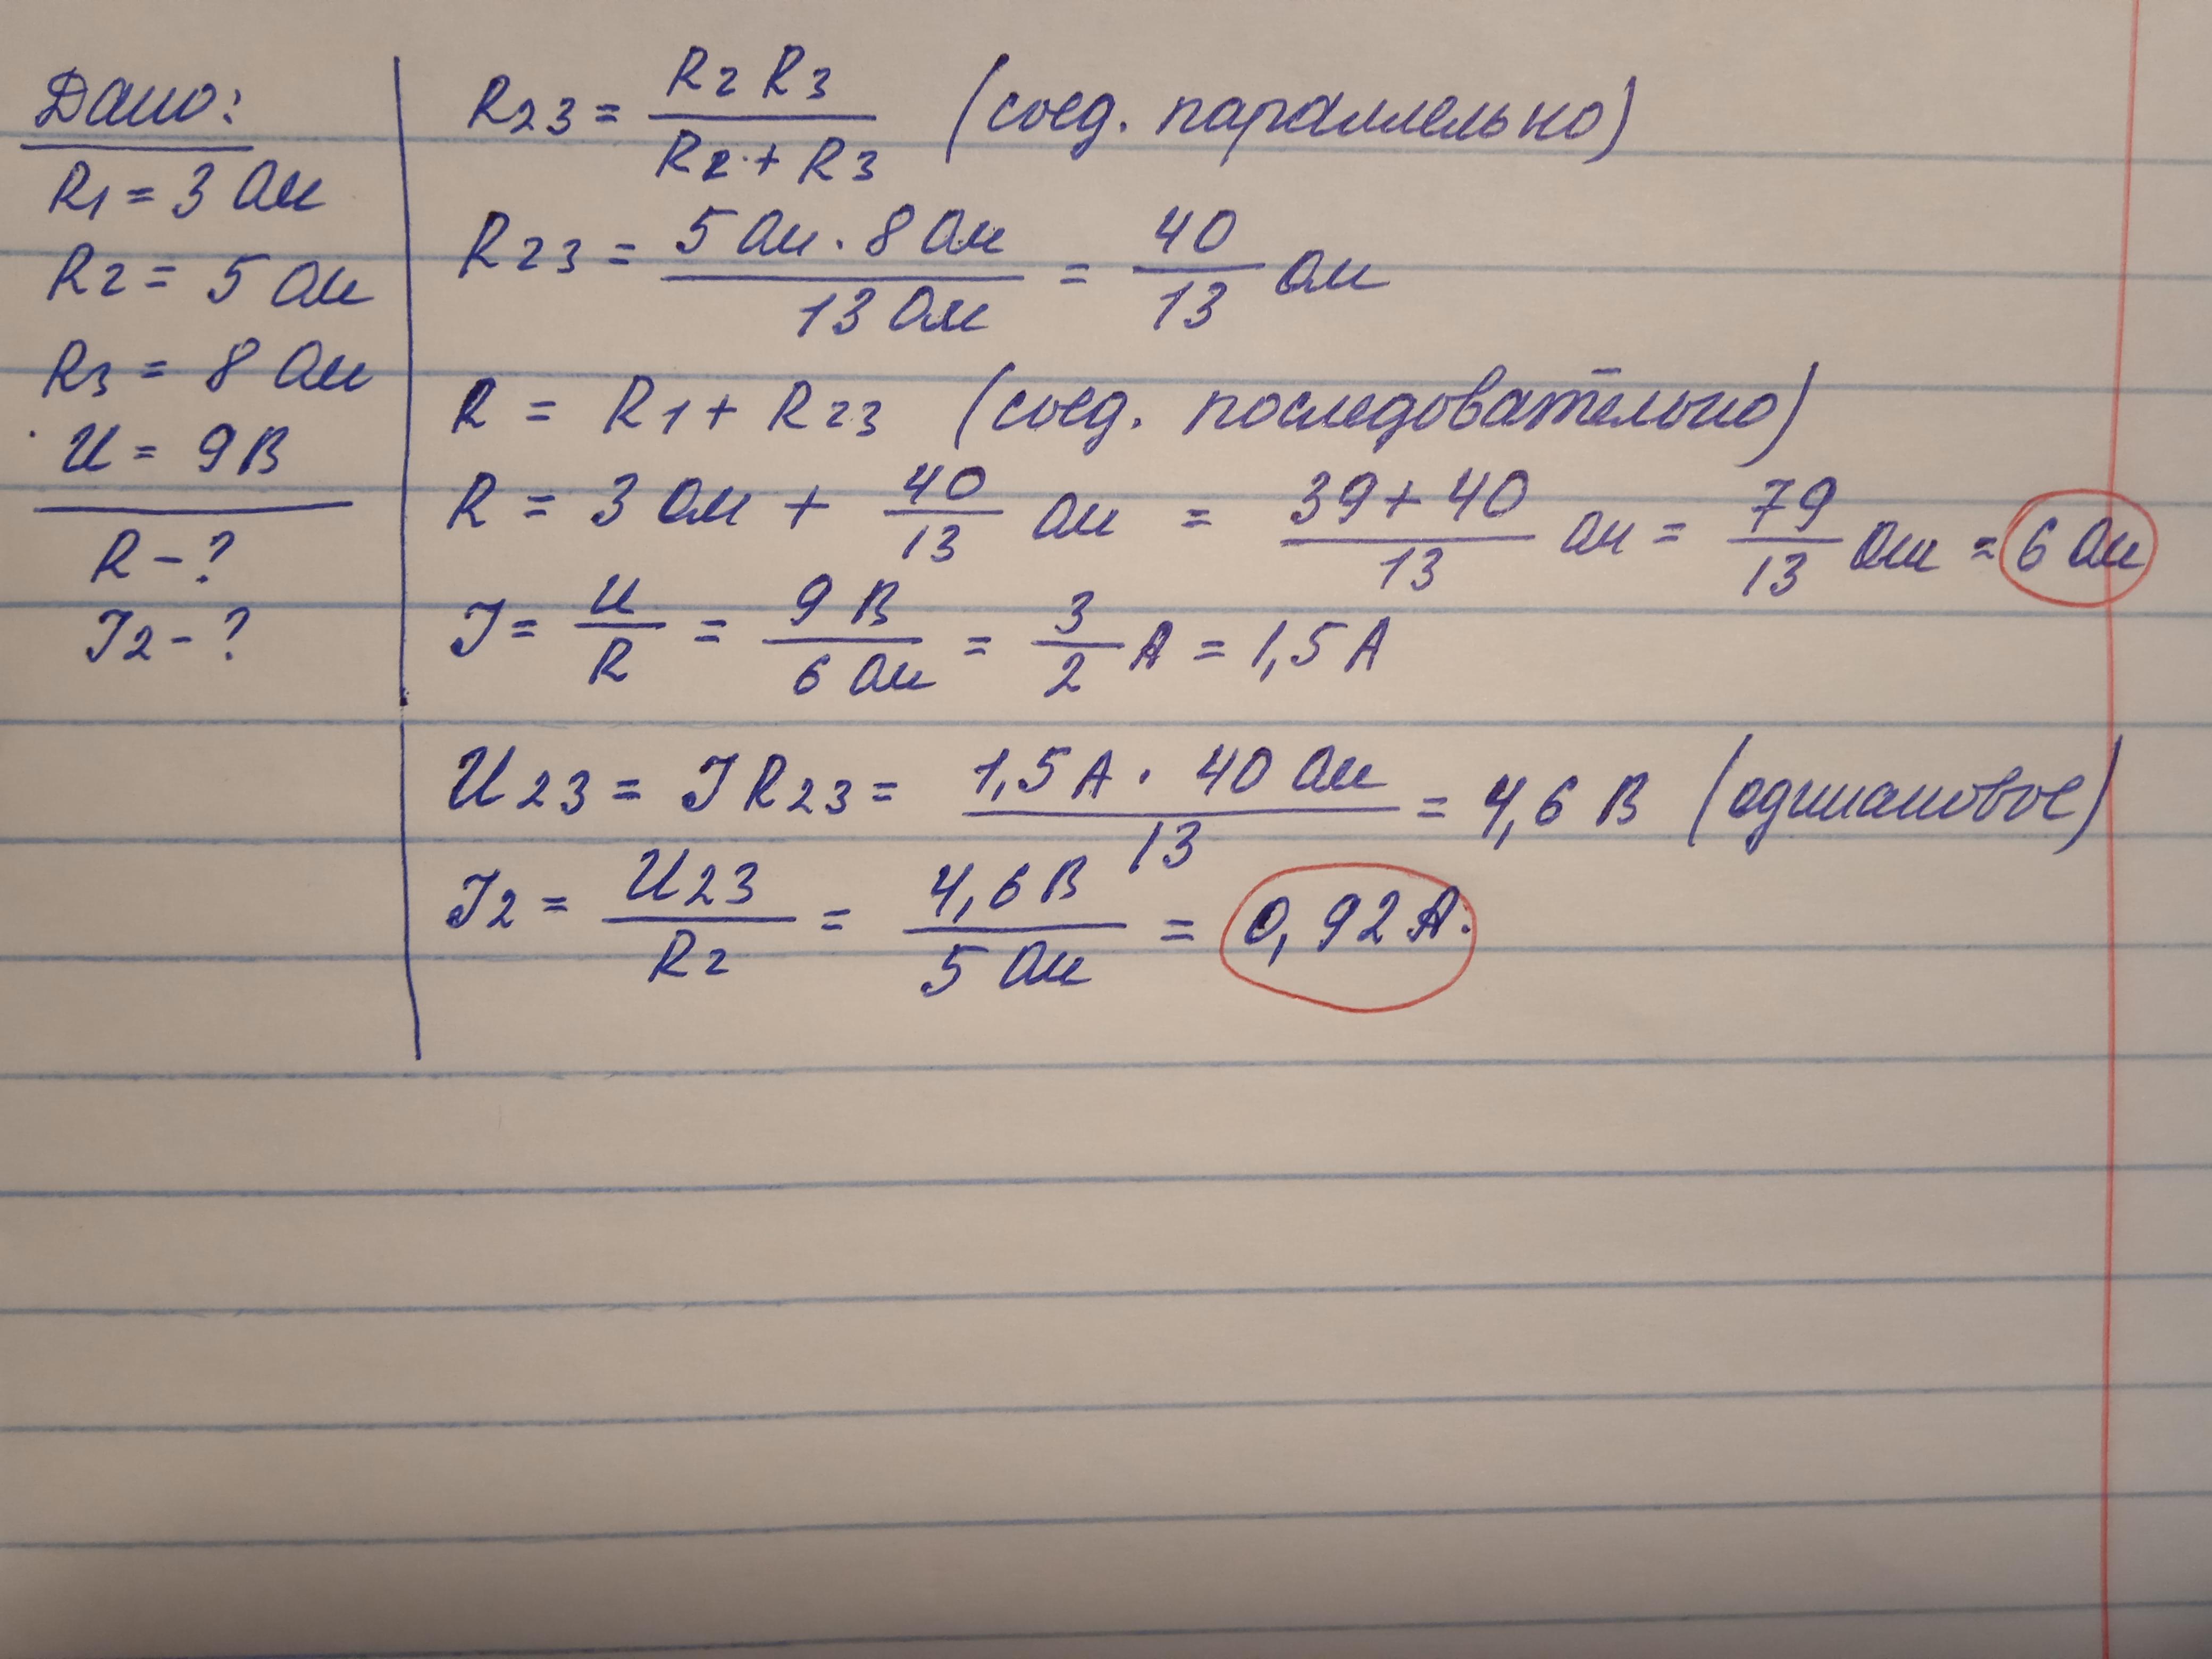 Дано:
R1 = 3 Ом
R2 = 5 Ом
R3 = 8 Ом
U = 9 В
R - ?
I2 - ?
R23 = R2 R3 / R2 + R3 (соед. параллельно)
R23 = 5 Ом · 8 Ом / 13 Ом = 40 / 13 Ом
R = R1 + R23 (соед. последовательно)
R = 3 Ом + 40 / 13 Ом = 39 + 40 / 13 Ом = 79 / 13 Ом = 6 Ом
I = U / R = 9 В / 6 Ом = 3 / 2 А = 1,5 А
U23 = I R23 = 1,5 А · 40 Ом / 13 = 4,6 В (одинаковое)
I2 = U23 / R2 = 4,6 В / 5 Ом = 0,92 А.